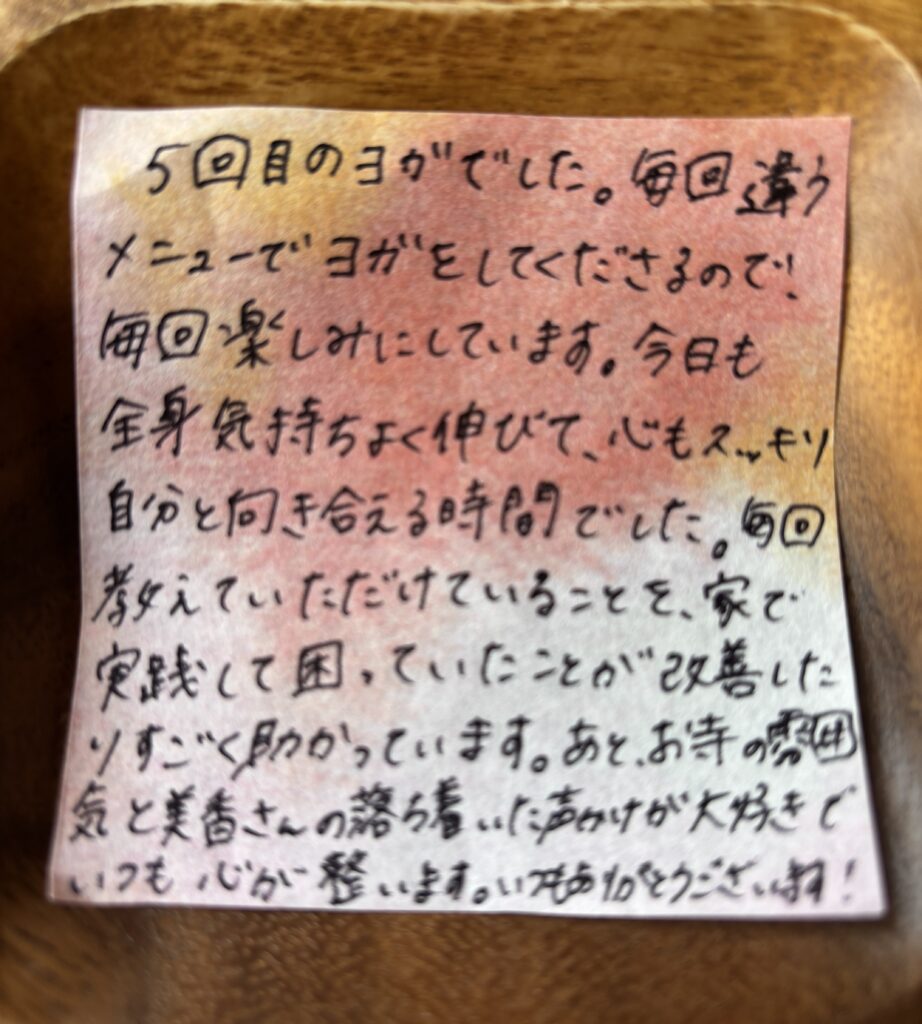 5回目のヨガでした。毎回違う
メニューでヨガをしてくださるので、
毎回楽しみにしています。今日も
全身気持ちよく伸びて、心もスッキリ
自分と向き合える時間でした。毎回
教えていただけていることを、家で
実践して困っていたことが改善した
りすごく助かっています。あと、お寺の雰囲
気と美香さんの落ち着いた声かけが大好きで
いつも心が整います。いつもありがとうございます!